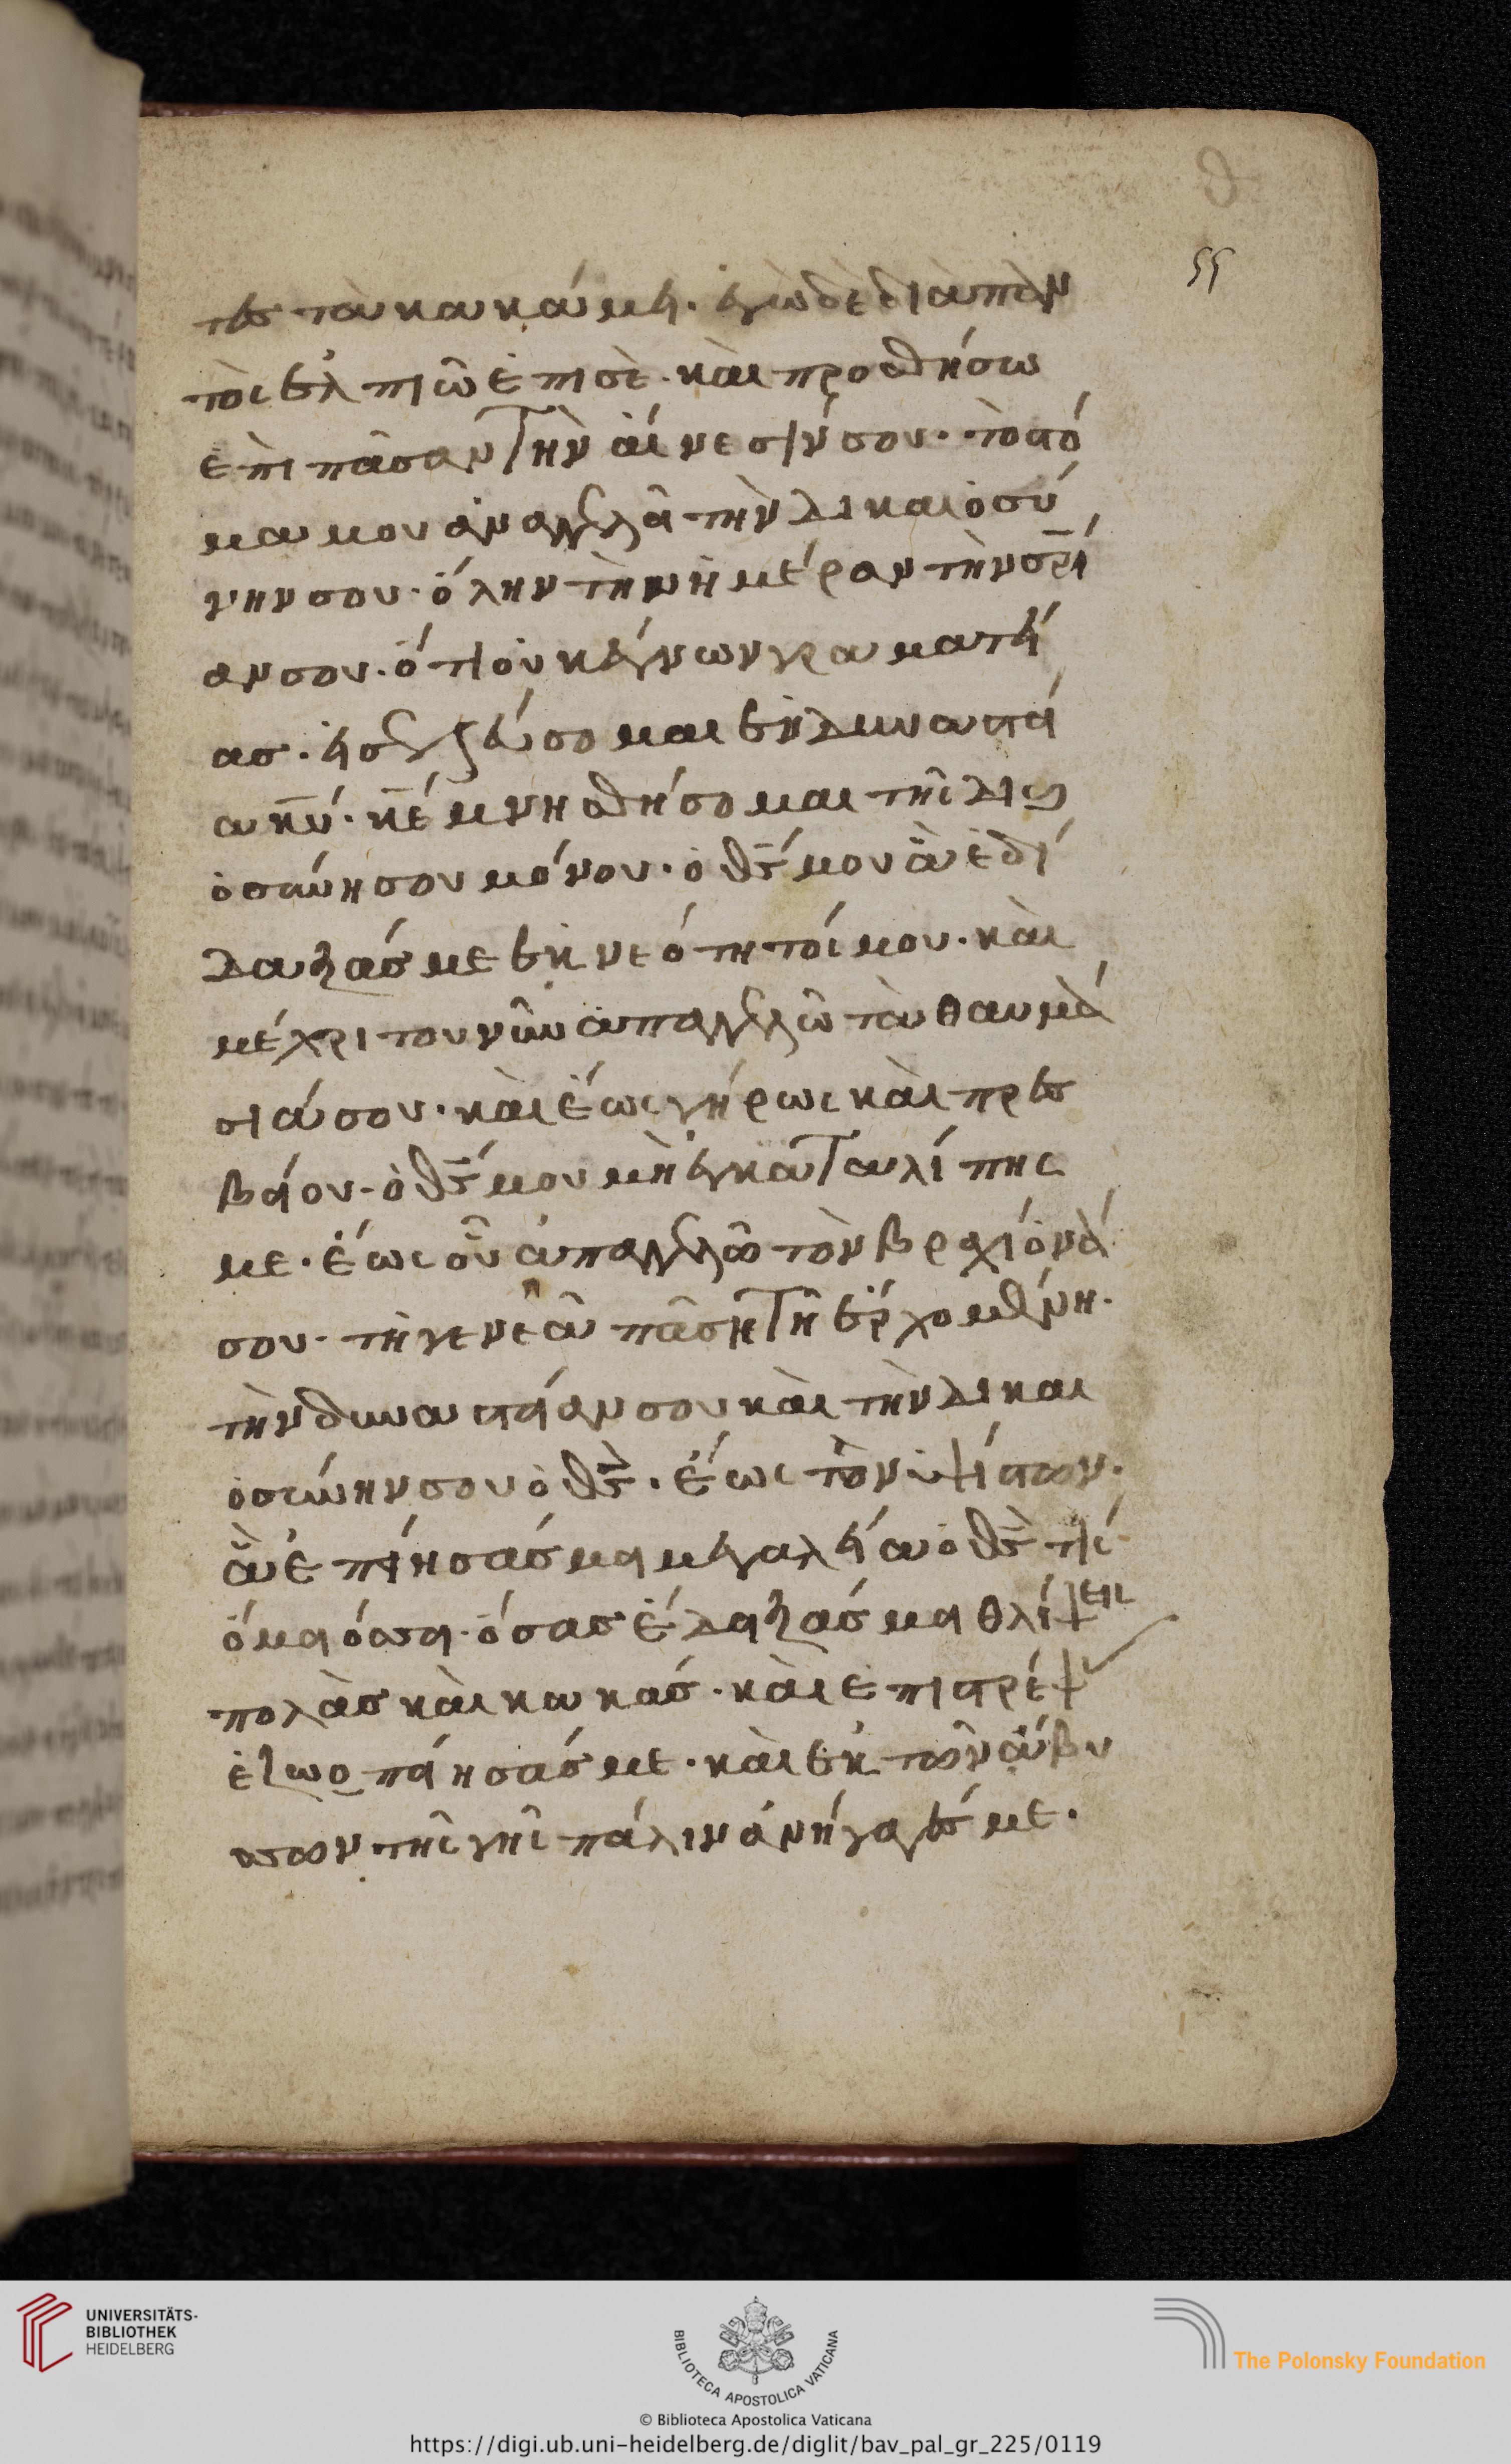 ϑ
55
τες τὰ κακά μει. ἐγὼ δὲ διὰ παν
τὸς ἐλπιῶ ἐπι σὲ. καὶ προσθήσω
ἐπι πᾶσαν τὴν αἴνεσίν σου. τὸ στό
μα μου ἀναγγελεῖ τὴν δικαιοσύ
νην σου. ὅλην τὴν ἡμέραν τὴν σρί
αν σου. ὅτι οὐκ ἔγνων γραματεί
ας. εἰσελεύσομαι ἐν δυναστεί
α κυ. κε μνησθήσομαι τῆς δικαι
οσύνης σου μόνου. ὁ θς μου ἃ ἐδί
δαξάς με ἐκ νεότητός μου. καὶ
μέχρι του νῦν ἀπαγγελῶ τὰ θαυμά
σιά σου. καὶ ἕως γήρως καὶ πρεσ
βείου. ὁ θς μου μὴ ἐγκαταλίπης
με. ἕως οὗ ἀπαγγελῶ τὸν βραχίονά
σου. τῆ γενεᾶ πάσῃ τῆ ἐρχομένη.
τὴν δυναστείαν σου καὶ τὴν δικαι
οσύνην σου ὁ θς. ἕως τῶν ὑψίστων.
ἃ ἐποίησάς μοι μεγαλεία ὁ θς τίς
ὅμοιός σοι. ὅσας ἔδειξάς μοι θλίψεις
πολὰς καὶ κακάς. καὶ ἐπιστρέψας
ἐζωοποίησάς με. καὶ ἐκ τῶν ἀβύ
σσων τῆς γῆς πάλιν ἀνήγαγές με.
UNIVERSITÄTS-
BIBLIOTHEK
HEIDELBERG
BIBLIOTECA APOSTOLICA VATICANA
The Polonsky Foundation
© Biblioteca Apostolica Vaticana
https://digi.ub.uni-heidelberg.de/diglit/bav_pal_gr_225/0119